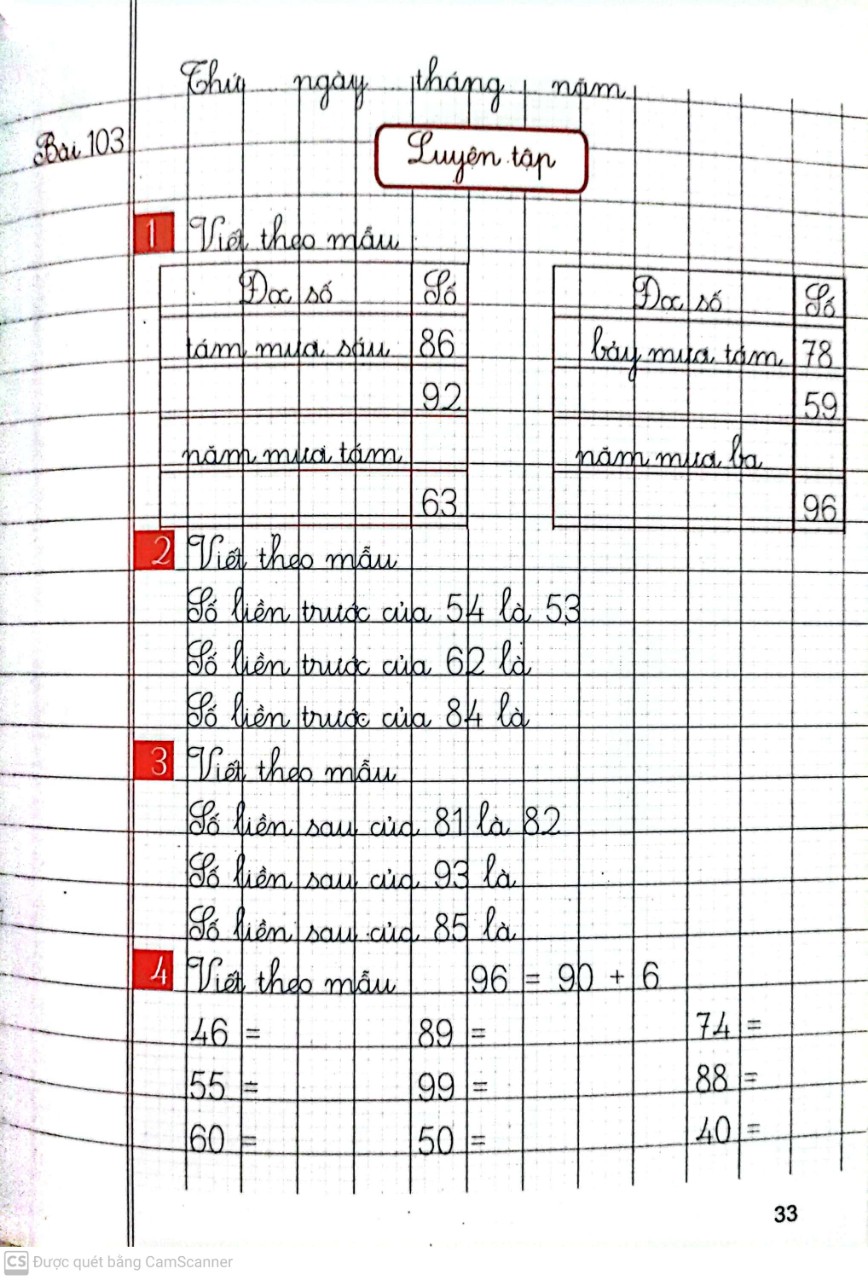 Thứ ngày tháng năm
Bài 103
Luyện tập
1 Viết theo mẫu
Đọc số Số
tám mươi sáu 86
92
năm mươi tám
63
Đọc số Số
bảy mươi tám 78
59
năm mươi ba
96
2 Viết theo mẫu
Số liền trước của 54 là 53
Số liền trước của 62 là
Số liền trước của 84 là
3 Viết theo mẫu
Số liền sau của 81 là 82
Số liền sau của 93 là
Số liền sau của 85 là
4 Viết theo mẫu 96 = 90 + 6
46 = 89 = 74 =
55 = 99 = 88 =
60 = 50 = 40 =
33
CS Được quét bằng CamScanner